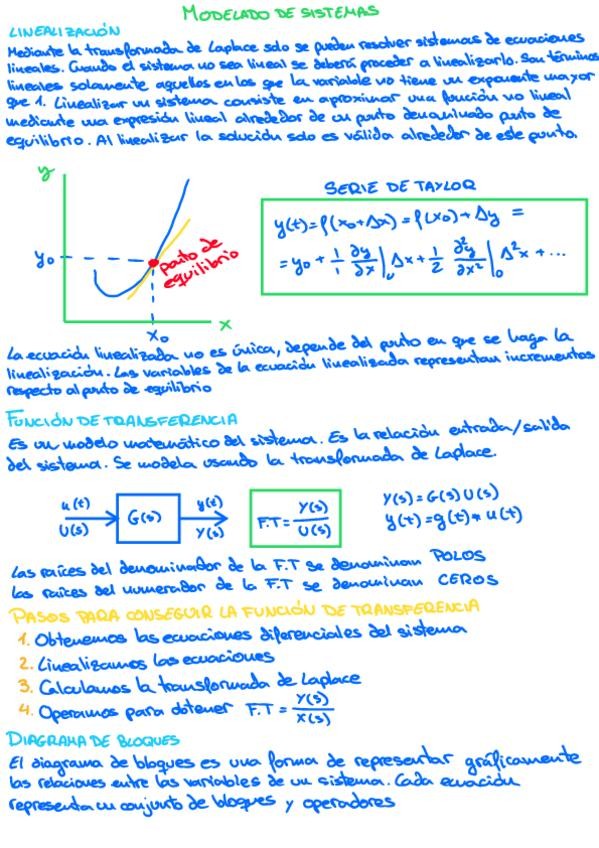 MODELADO DE SISTEMAS
LINEALIZACIÓN
Mediante la transformada de Laplace solo se pueden resolver sistemas de ecuaciones
lineales. Cuando el sistema no sea lineal se deberá proceder a linealizarlo. Son términos
lineales solamente aquellos en los que la variable no tiene un exponente mayor
que 1. Linealizar un sistema consiste en aproximar una función no lineal
mediante una expresión lineal alrededor de un punto denominado punto de
equilibrio. Al linealizar la solución solo es válida alrededor de este punto.
y
SERIE DE TAYLOR
y(t)=f(x₀+Δx)=f(x₀)+Δy =
y₀
punto de
equilibrio
=y₀ + 1/1 ∂y/∂x|₀ Δx + 1/2 ∂²y/∂x²|₀ Δ²x + ...
x₀
x
La ecuación linealizada no es única, depende del punto en que se haga la
linealización. Las variables de la ecuación linealizada representan incrementos
respecto al punto de equilibrio
FUNCIÓN DE TRANSFERENCIA
Es un modelo matemático del sistema. Es la relación entrada/salida
del sistema. Se modela usando la transformada de Laplace.
u(t)
U(s)
G(s)
y(t)
Y(s)
F.T = Y(s)/U(s)
Y(s)=G(s)U(s)
y(t)=g(t)*u(t)
Las raíces del denominador de la F.T se denominan POLOS
Las raíces del numerador de la F.T se denominan CEROS
PASOS PARA CONSEGUIR LA FUNCIÓN DE TRANSFERENCIA
1. Obtenemos las ecuaciones diferenciales del sistema
2. Linealizamos las ecuaciones
3. Calculamos la transformada de Laplace
4. Operamos para obtener F.T = Y(s)/X(s)
DIAGRAMA DE BLOQUES
El diagrama de bloques es una forma de representar gráficamente
las relaciones entre las variables de un sistema. Cada ecuación
representa un conjunto de bloques y operadores